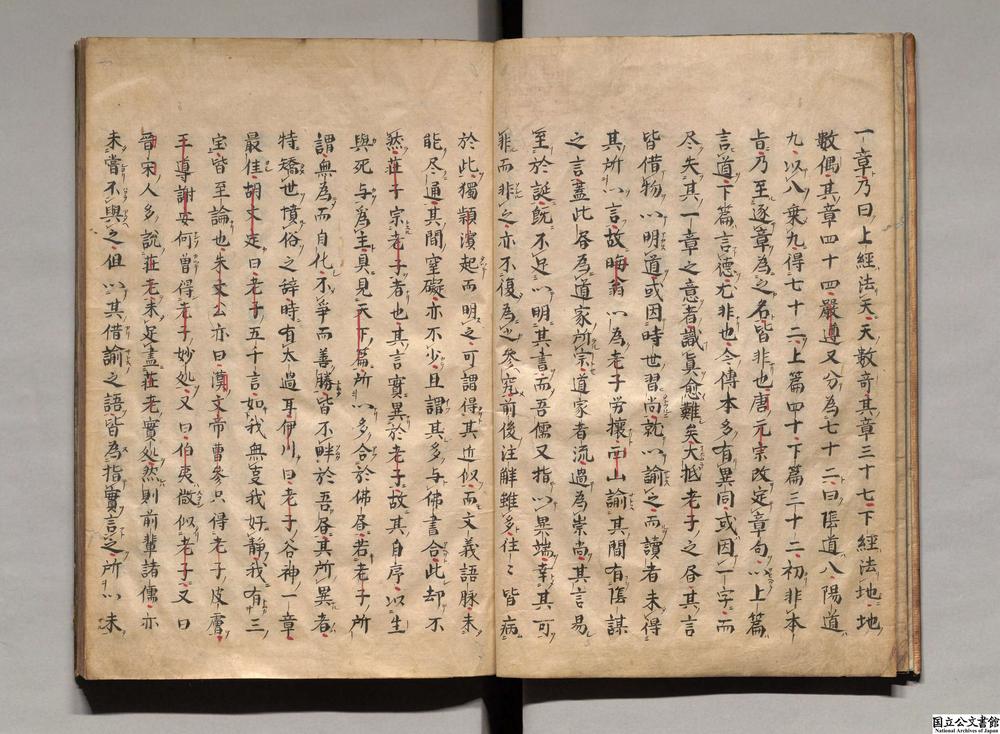 一章乃曰上經法天天數奇其章三十七下經法地地
數偶其章四十四嚴遵又分為七十二曰陰道八陽道
九以八乗九得七十二上篇四十下篇三十二初非本
旨乃至逐章為之名皆非也唐元宗改定章句以上篇
言道下篇言德尤非也今傳本多有異同或因一字而
尽失其一章之意者識真愈難矣大抵老子之书其言
皆借物以明道或因時世習尚就以諭之而讀者未得
其所以言故晦翁以為老子労攘西山諭其間有陰謀
之言蓋此书為道家所宗道家者流過為崇尚其言易
至於誕既不足以明其書而吾儒又指以異端幸其可
非而非之亦不復為之参究前後注解雖多往〻皆病
於此獨頴濱起而明之可謂得其近似而文義語脉未
能尽通其間窒礙亦不少且謂其多与佛書合此却不
然荘子宗老子者也其言實異於老子故其自序以生
與死与為主具見天下篇所以多合於佛书若老子所
謂無為而自化不爭而善勝皆不畔於吾书其所異者
特矯世憤俗之辞時有太過耳伊川曰老子谷神一章
最佳胡文定曰老子五十言如我無事我好靜我有三
宝皆至論也朱文公亦曰漢文帝曹参只得老子皮膚
王導謝安何曽得老子妙処又曰伯夷微似老子又曰
晋宋人多說荘老未足盡荘老實処然則前輩諸儒亦
未嘗不與之但以其借諭之語皆為指實言之所以未
国立公文書館
National Archives of Japan